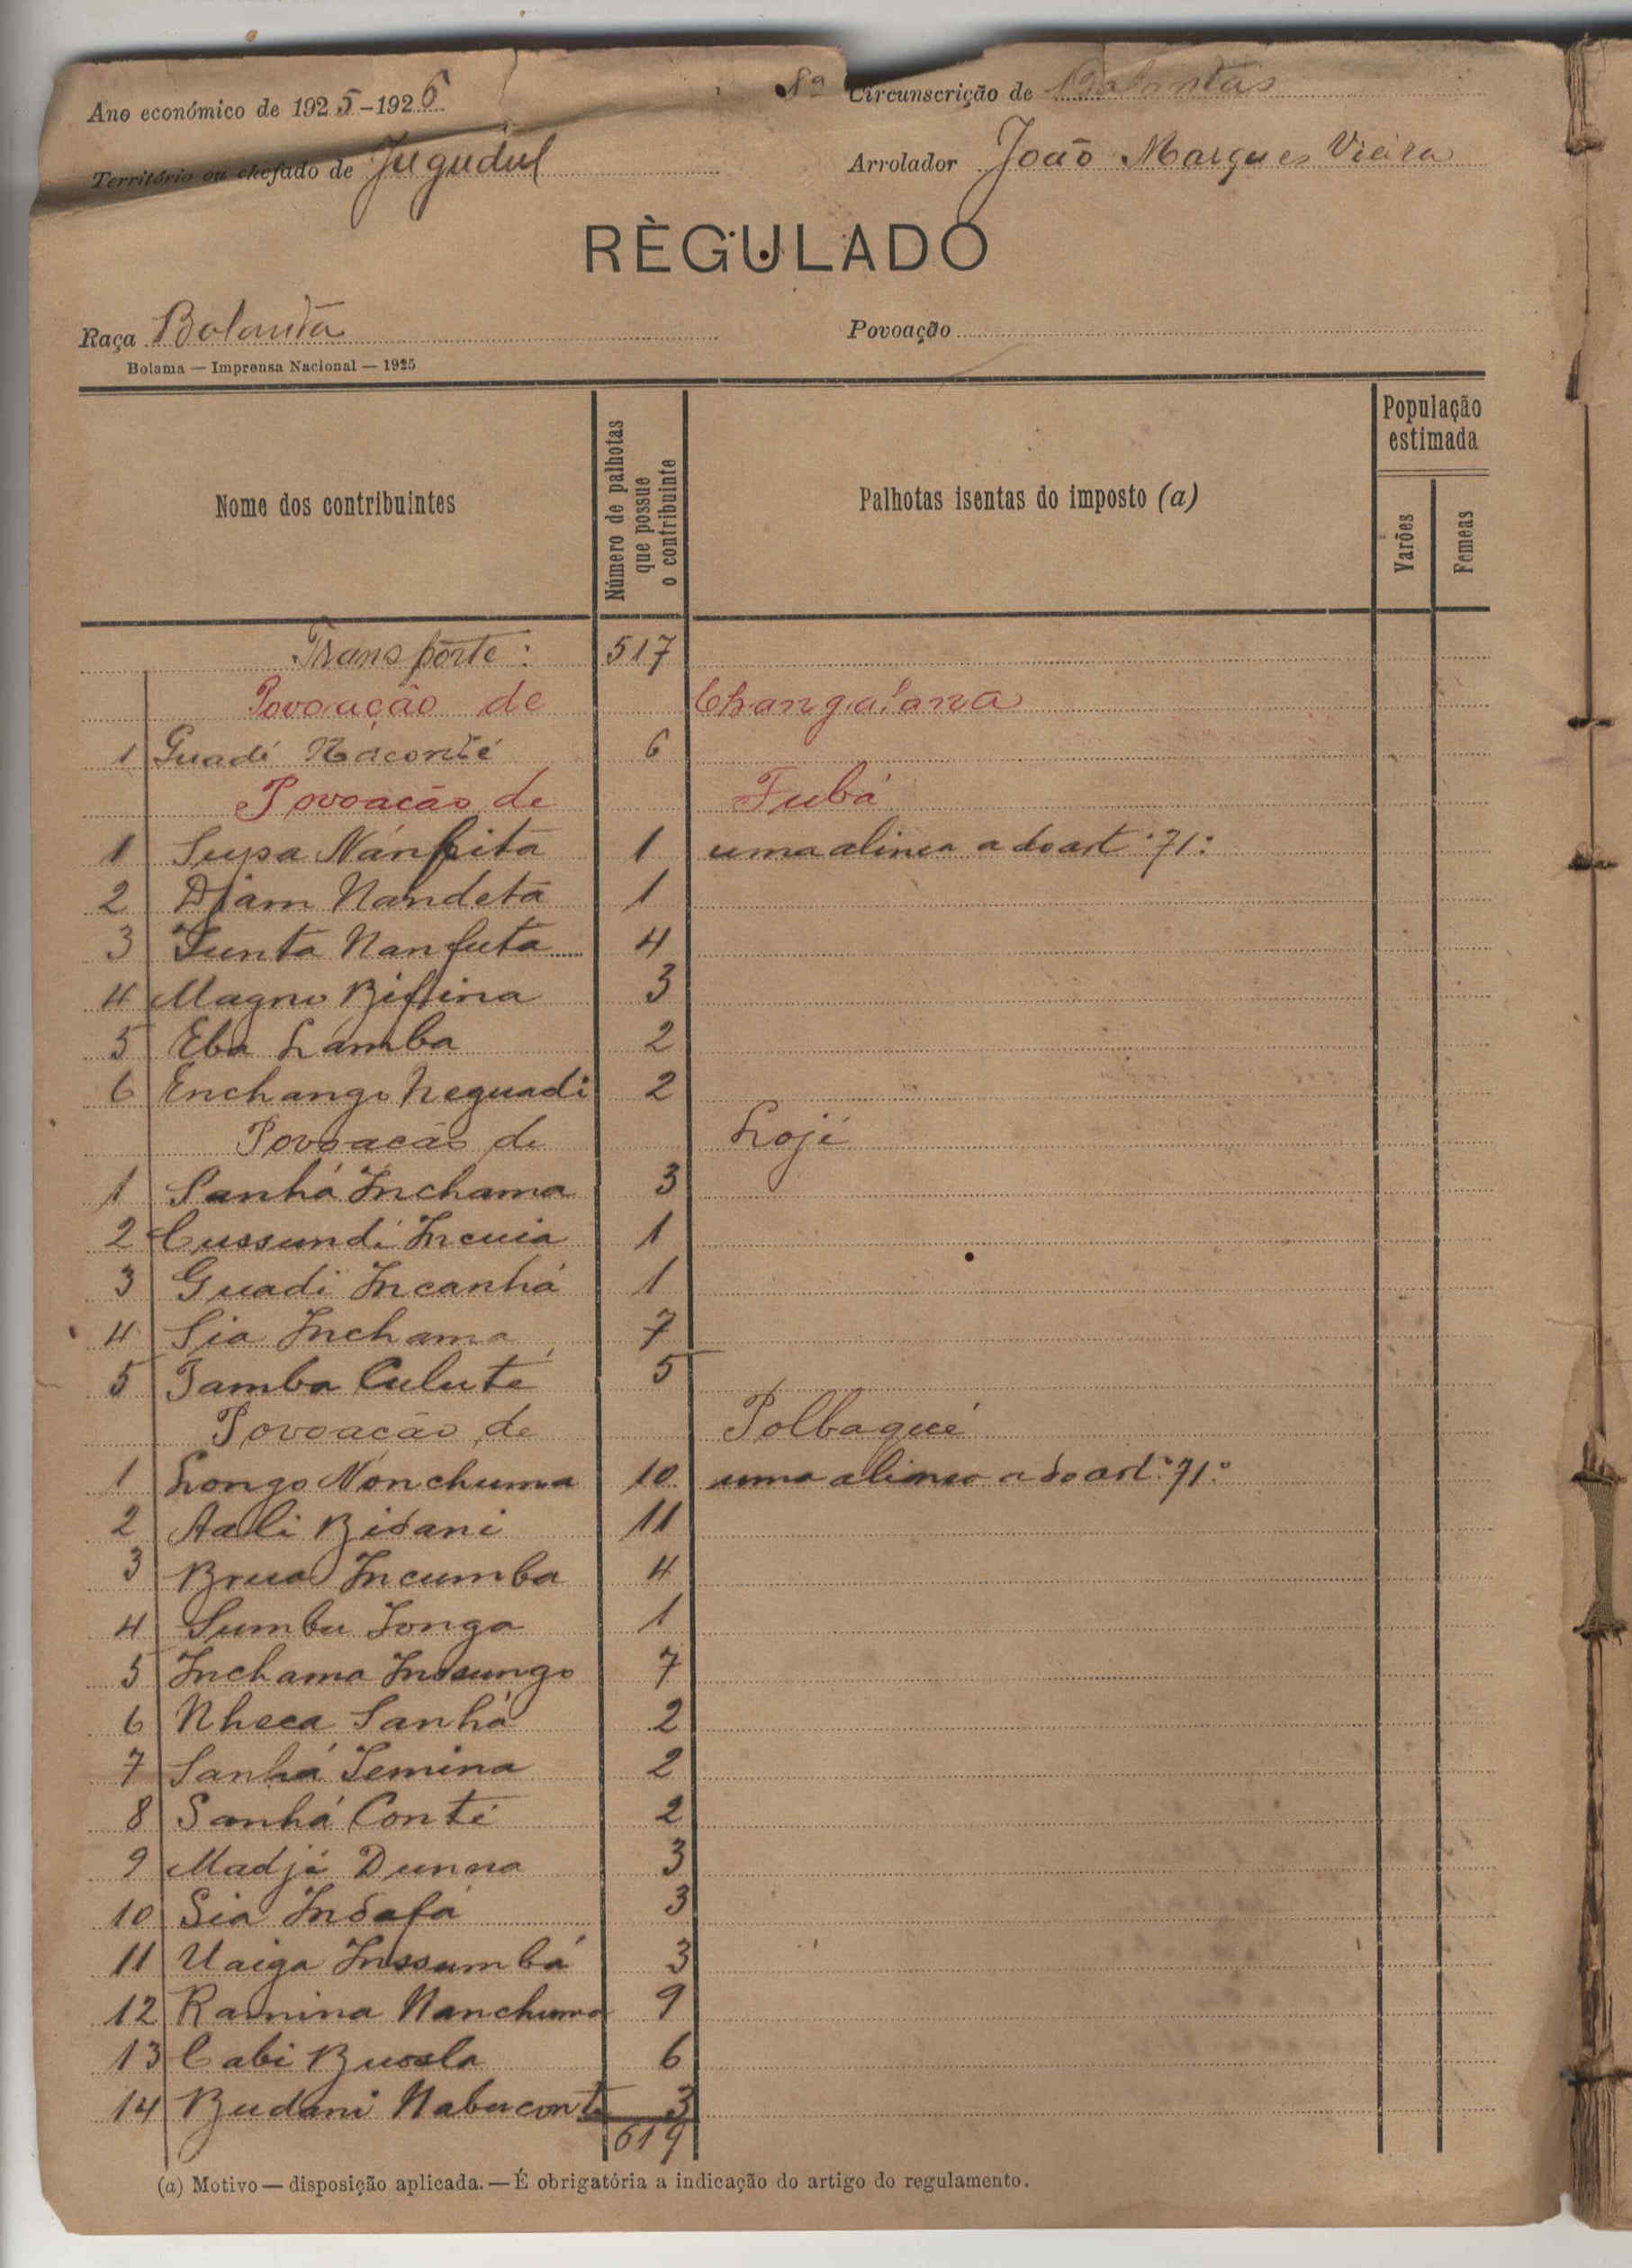 Ano económico de 1925-1926
8ª Circunscrição de Balantas
Território ou chefado de Jugudul
Arrolador João Marques Vieira
RÈGULADO
Raça Balanta
Povoação
Bolama — Imprensa Nacional — 1925
Nome dos contribuintes
Número de palhotas que possue o contribuinte
Palhotas isentas do imposto (a)
População estimada
Varões
Femeas
Transpôrte: 517
Povoação de Changalana
1 Guadi Naconté 6
Povoacão de Fubá
1 Supa Nánhita 1 uma alinea a do art.º 71:
2 Djam Nandeta 1
3 Funta Nanfuta 4
4 Magno Bifina 3
5 Eba Lamba 2
6 Enchango Neguadi 2
Povoacão de Lojé
1 Sanhá Inchama 3
2 Cussundi Incuia 1
3 Guadi Incanhá 1
4 Sia Inchama 7
5 Tamba Culuté 5
Povoacão de Polbaqué
1 Longo Nonchuma 10 uma alinea a do art.º 71.º
2 Aali Bidani 11
3 Brua Incumba 4
4 Sumbu Tonga 1
5 Inchama Insungo 7
6 Nheca Sanhá 2
7 Sanhá Temina 2
8 Sanhá Conté 2
9 Madjá Dunna 3
10 Sia Indafá 3
11 Uaiga Inssumbá 3
12 Ramina Nanchuma 9
13 Cabi Buosla 6
14 Budani Nabuconte 3
619
(a) Motivo — disposição aplicada. — É obrigatória a indicação do artigo do regulamento.